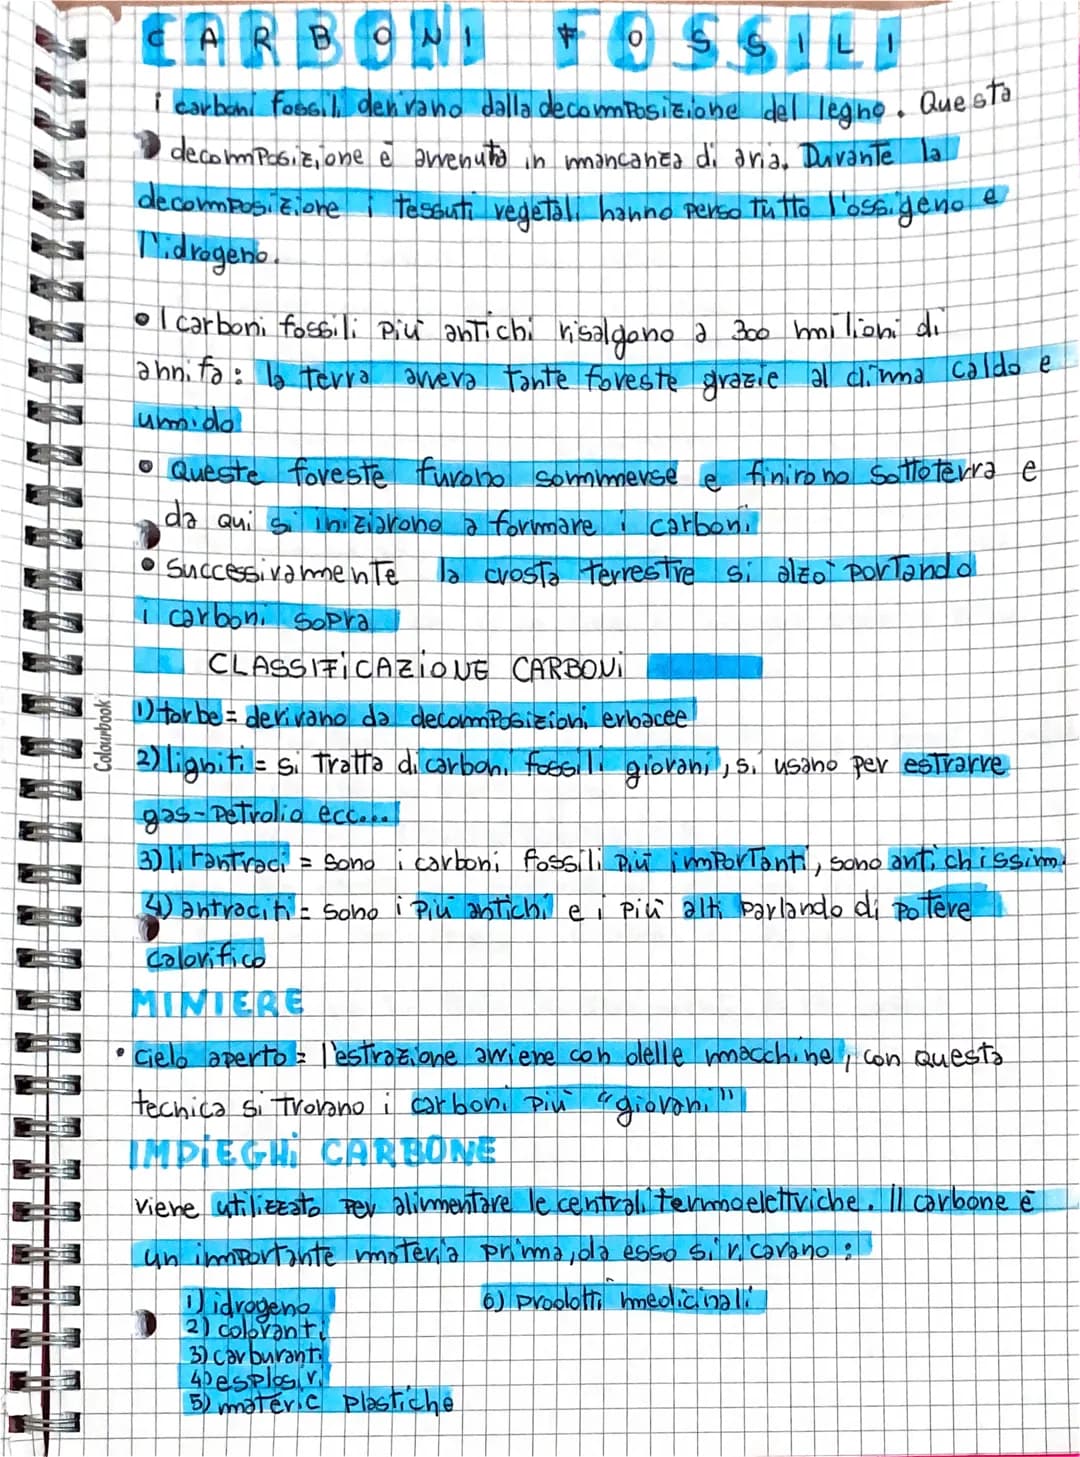 CARBONI FOSSILI
i carboni fossili derivano dalla decomposizione del legno. Questa
decomposizione è avvenuta in mancanza di aria. Durante la
decomposizione i tessuti vegetali hanno perso tutto l'ossigeno e
l'idrogeno.
• I carboni fossili più antichi risalgono a 300 milioni di
anni fa: la terra aveva tante foreste grazie al clima caldo e
umido
• Queste foreste furono sommerse e finirono sottoterra e
da qui si iniziarono a formare i carboni
• Successivamente la crosta terrestre si alzo' portando
i carboni sopra
CLASSIFICAZIONE CARBONI
1) torbe = derivano da decomposizioni erbacee
2) ligniti = si tratta di carboni fossili giovani, si usano per estrarre
gas-petrolio ecc...
3) litantraci = sono i carboni fossili più importanti, sono antichissimi
4) antraciti = sono i più antichi e i più alti parlando di potere
calorifico
MINIERE
• cielo aperto = l'estrazione avviene con delle macchine, con questa
tecnica si trovano i carboni più "giovani"
IMPIEGHI CARBONE
viene utilizzato per alimentare le centrali termoelettriche. Il carbone è
un importante materia prima, da esso si ricavano:
1) idrogeno
2) coloranti
3) carburanti
4) esplosivi
5) materie plastiche
6) prodotti medicinali
Colourbook